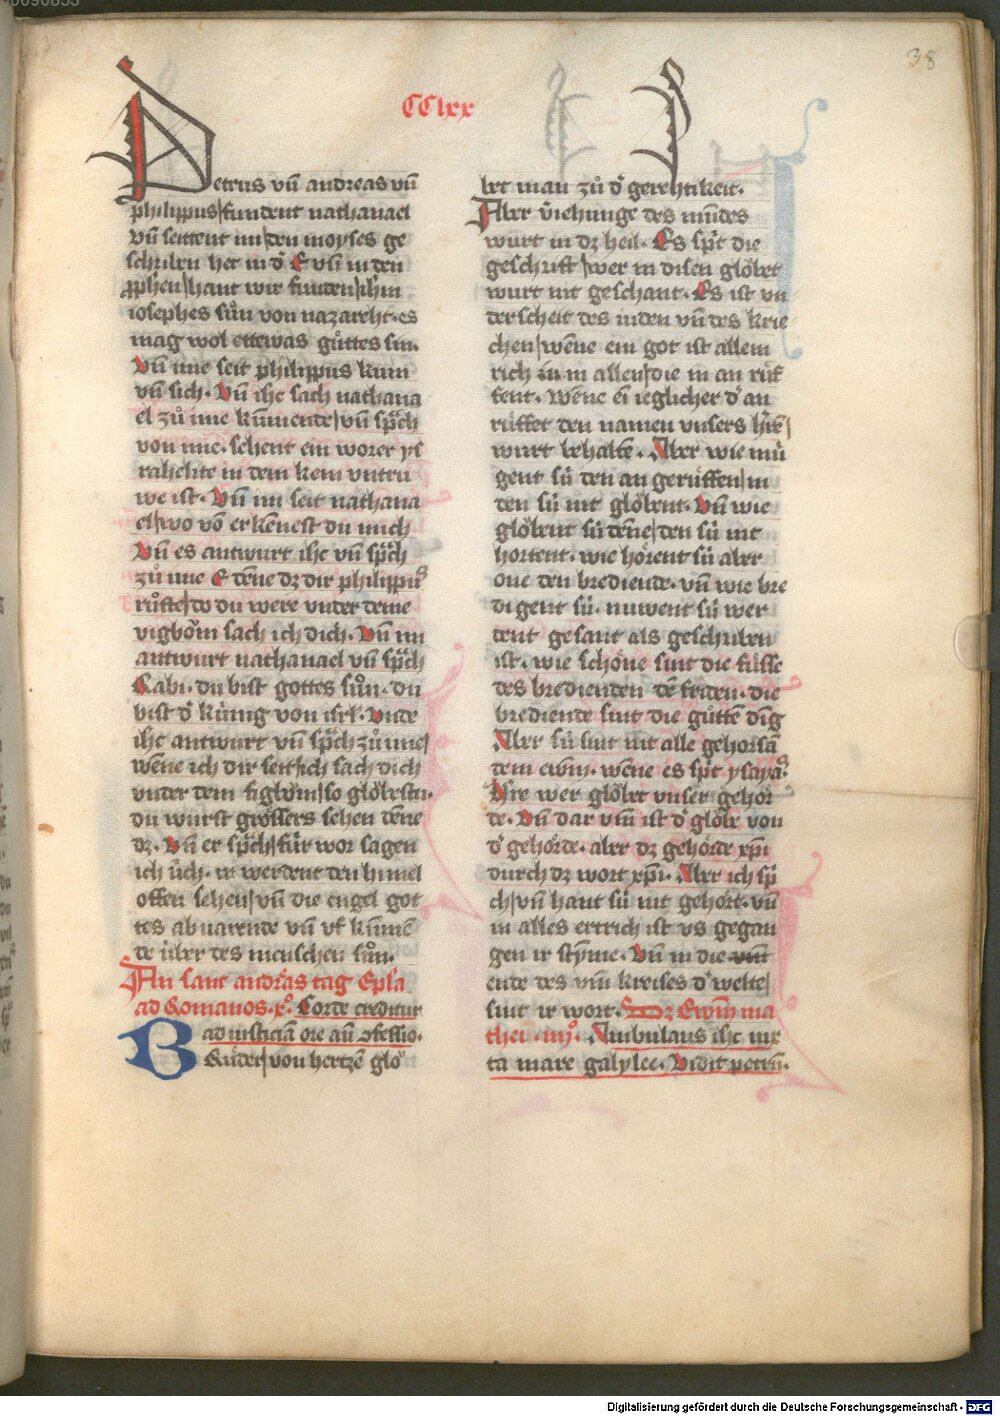 38
CClxx
Petrus vn̄ andreas vn̄
philippus fundent nathanael
vn̄ seitent im den moyses ge
schriben het in d̕ E vn̄ in den
ꝓphen haut wir funden ihm
iosephes sůn von nazareht· es
mag wol ettewas gůttes sin·
Vn̄ ime seit philippus kum
vn̄ sich· Vn̄ ihc sach nathana
el zů ime kūmende vn̄ sp̄ch
von ime· sehent ein worer ys
rahelite in dem kein vntru
we ist· Vn̄ im seit nathana
el wo vō erkēnest du mich
Vn̄ es antwurt ihc vn̄ sp̄ch
zů ime E dēne dz dir philippus
růfte do du were vnder deme
vigbŏm sach ich dich· Vn̄ im
antwurt nathanael vn̄ sp̄ch
Rabi· du bist gottes sůn· du
bist d̕ kúnig von isrl· Vnde
ihc antwurt vn̄ sp̄ch zů ime
wēne ich dir seit ich sach dich
vnder dem figbŏm so glŏbestu·
du wurst grŏssers sehen dēne
dz· Vn̄ er sp̄ch fúr wor sagen
ich úch· ir werdent den himel
offen sehen vn̄ die engel got
tes abvarende vn̄ vf kūmē
de úber des menschen sůn·
An sanc andr̄as tag Ep̄la
ad Romanos· xͦ· Corde creditur
ad iusticiā ore aū ꝯfessio·
Brúder von hertzē glŏ
bet man zů d̕ gerehtikeit·
Aber v̕iehunge des mūdes
wurt in dz heil· Es sp̄t die
geschrift wer in disen glŏbet
wurt nit geschant· Es ist vn
derscheit des iuden vn̄ des krie
chen wēne ein got ist allein
rich in allen die in an rúf
fent· wēne ei ieglicher d̕ an
rúffet den namen vnsers h̕rē
wurt behaltē· Aber wie mú
gent sú den an gerúffen in
den sú nit glŏbent· Vn̄ wie
glŏbent sú dēne den sú nit
hortent· wie hŏrent sú aber
one den brediende· vn̄ wie bre
digent sú· nuwent sú wer
dent gesant als geschriben
ist· wie schŏne sint die fússe
des bredienden dē friden· die
brediende sint die gůttē dīg
Aber sú sint nit alle gehorsā
dem ewm̄· wēne es sp̄t ysayas·
H̕re wer glŏbet vnser gehŏr
de· Vn̄ dar vm̄ ist d̕ glŏbe von
d̕ gehŏrde· aber dz gehŏrde xp̄i
durch dz wort xp̄i· Aber ich sp̄
ch vn̄ hant sú nit gehŏrt· vn̄
in alles ertrich ist vs gegan
gen ir stȳme· Vn̄ in die
ende des vm̄ kreises d̕ welte
sint ir wort· Dz Ewm̄ ma
thei· iiijͦ· Ambulans ihc iux
ta mare galylee· Vidit petrū·
Digitalisierung gefördert durch die Deutsche Forschungsgemeinschaft - DFG